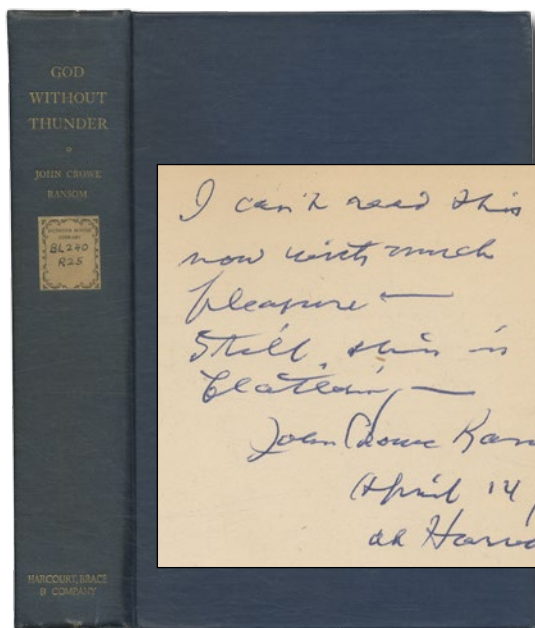 GOD
WITHOUT
THUNDER
JOHN CROWE
RANSOM
LIBRARY
BL240
R25
HARCOURT, BRACE
& COMPANY
I can't read this
now with much
pleasure —
Still, this is
John Crowe Ran
April 14
at Harva